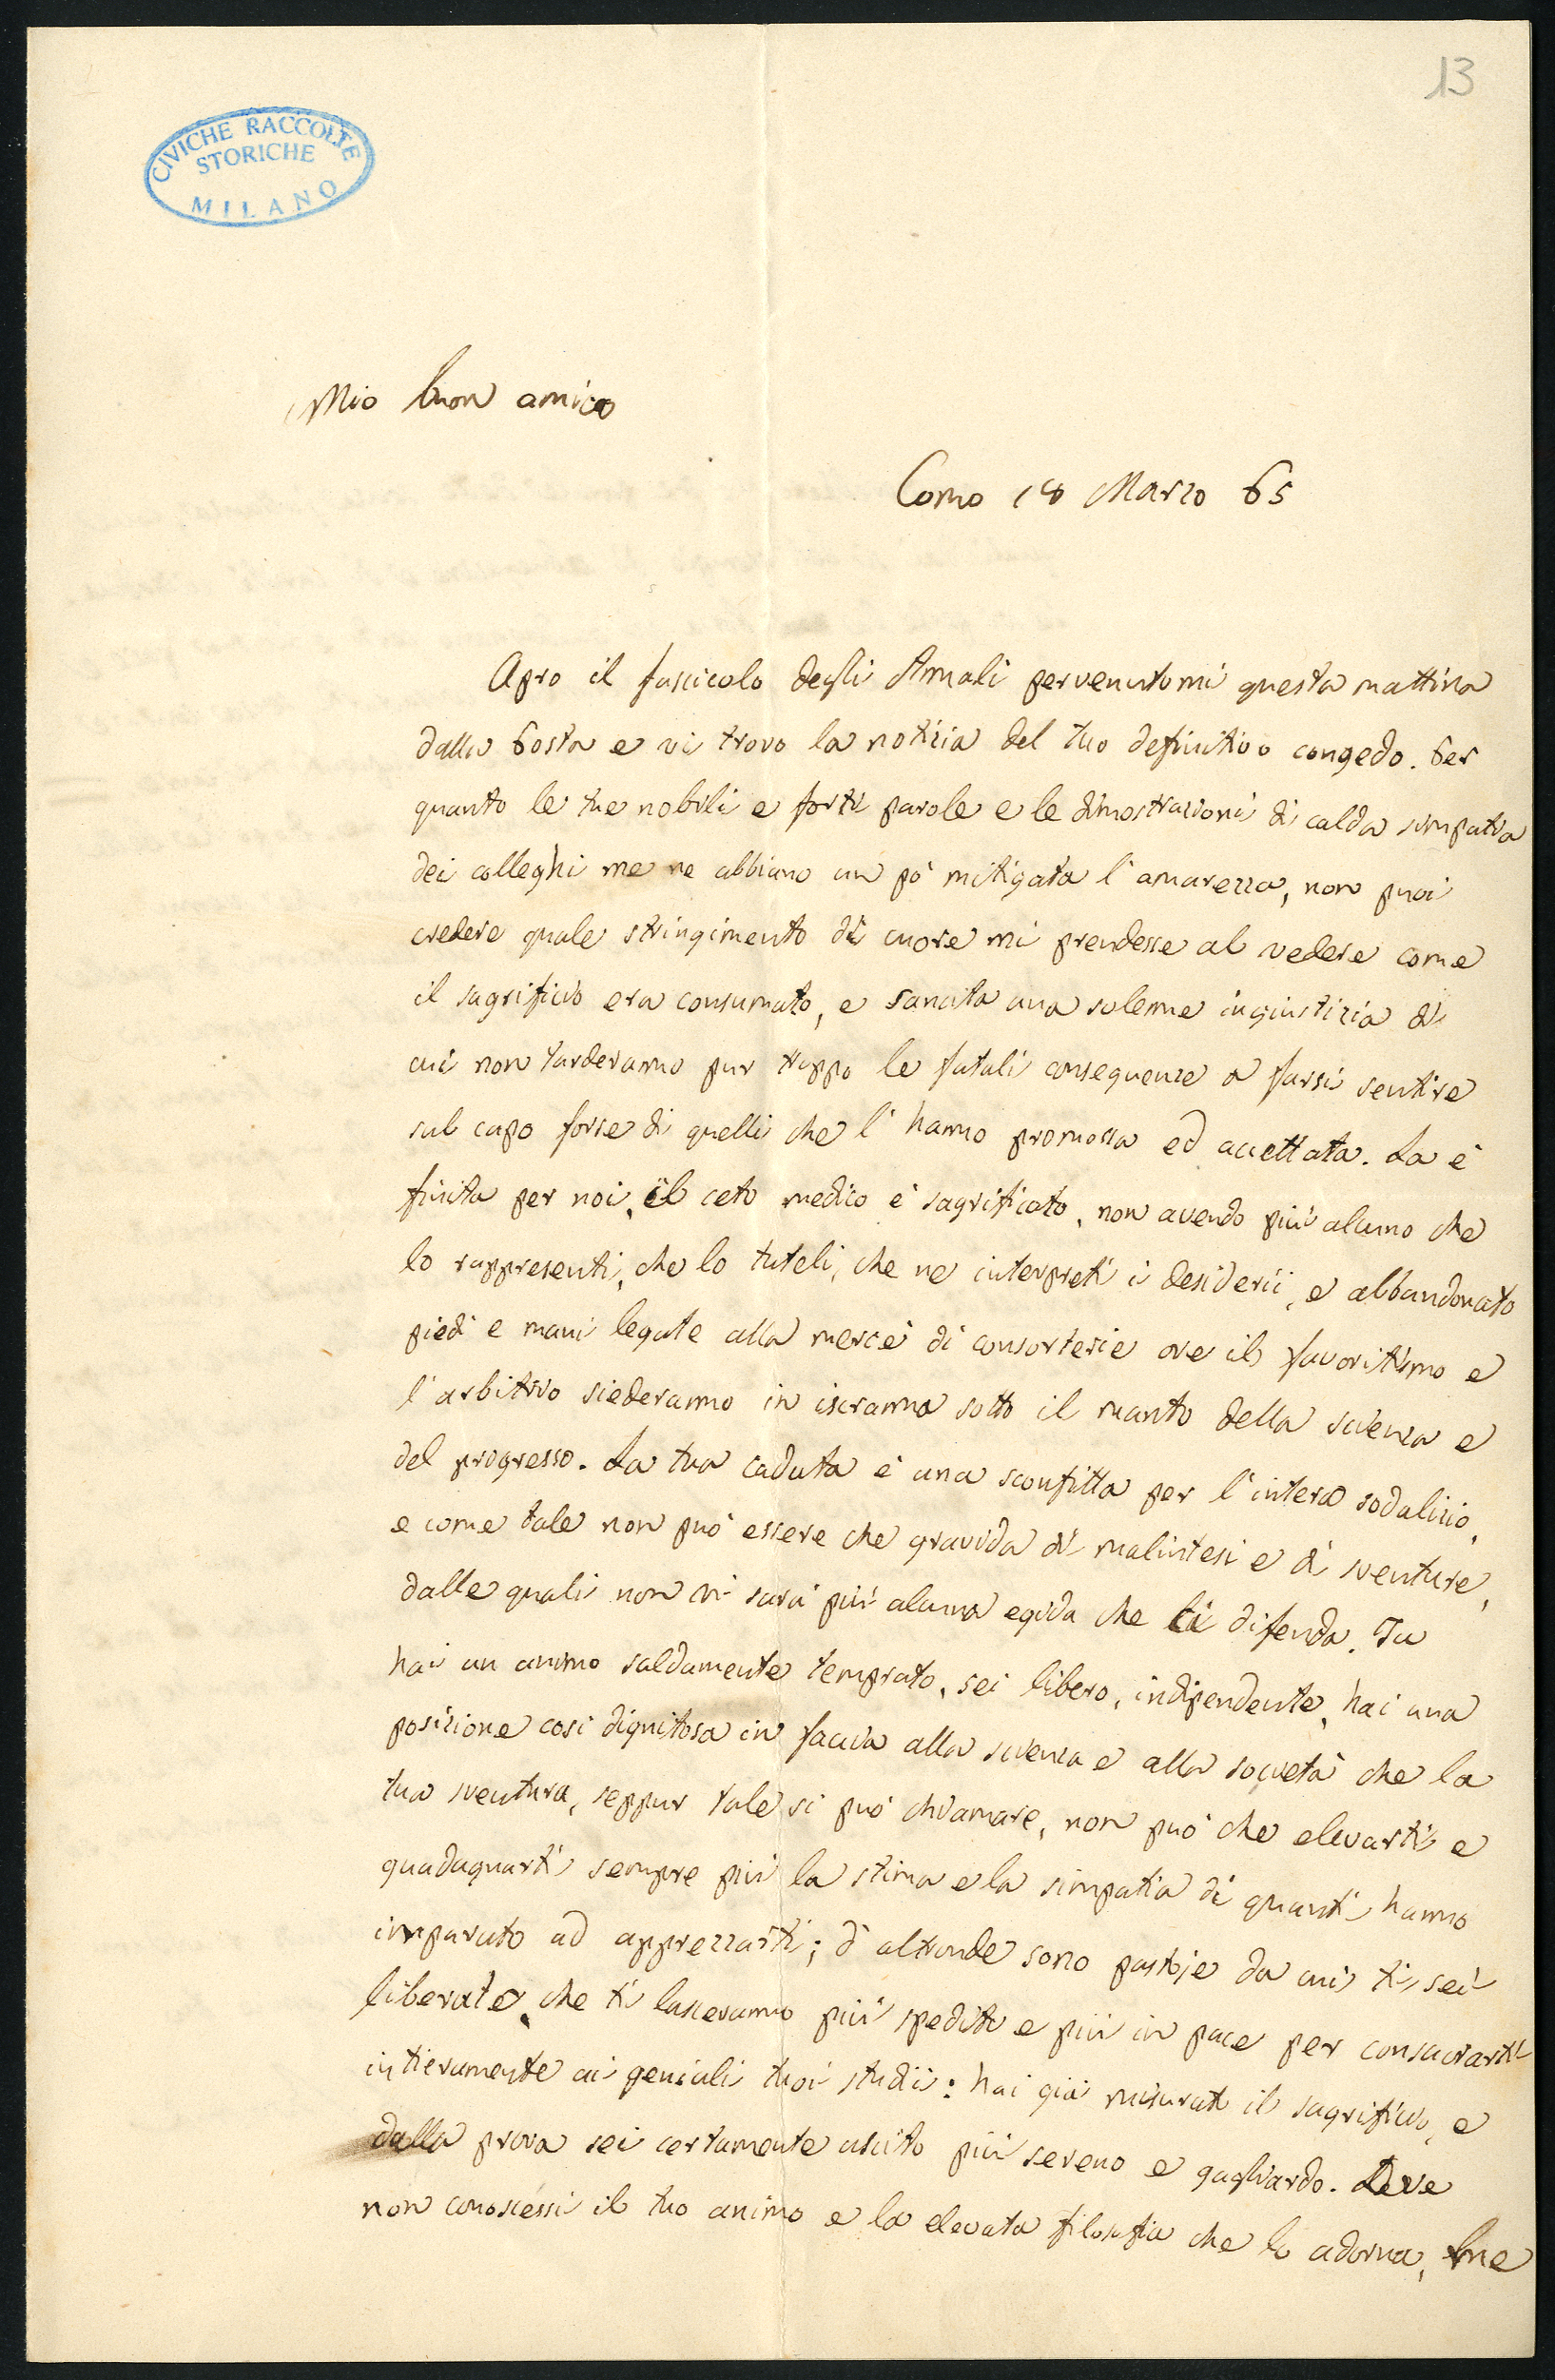 13
CIVICHE RACCOLTE
STORICHE
MILANO
Mio buon amico
Como 18 Marzo 65
Apro il fascicolo degli Annali pervenutomi questa mattina
dalla Posta e vi trovo la notizia del tuo definitivo congedo. Per
quanto le tue nobili e forti parole e le dimostrazioni di calda simpatia
dei colleghi me ne abbiano un pò mitigata l'amarezza, non puoi
credere quale stringimento di cuore mi prendesse al vedere come
il sagrificio era consumato, e sancita una solenne ingiustizia di
cui non tarderanno pur troppo le fatali conseguenze a farsi sentire
sul capo forse di quelli che l'hanno promossa ed accettata. La è
finita per noi, il ceto medico è sagrificato, non avendo più alcuno che
lo rappresenti, che lo tuteli, che ne interpreti i desiderii, e abbandonato
piedi e mani legate alla mercè di consorterie ove il favoritismo e
l'arbitrio siederanno in iscranna sotto il manto della scienza e
del progresso. La tua caduta è una sconfitta per l'intero sodalizio,
e come tale non può essere che gravida di malintesi e di sventure,
dalle quali non vi sarà più alcuna egida che ci difenda. Tu
hai un animo saldamente temprato, sei libero, indipendente, hai una
posizione così dignitosa in faccia alla scienza e alla società che la
tua sventura, seppur tale si può chiamare, non può che elevarti e
guadagnarti sempre più la stima e la simpatia di quanti hanno
imparato ad apprezzarti; d'altronde sono pastoje da cui ti sei
liberato, che ti lasceranno più spedito e più in pace per consacrarti
intieramente ai geniali tuoi studii: hai già misurato il sagrificio, e
dalla prova sei certamente uscito più sereno e gagliardo. Se
non conoscessi il tuo animo e la elevata filosofia che lo adorna, me